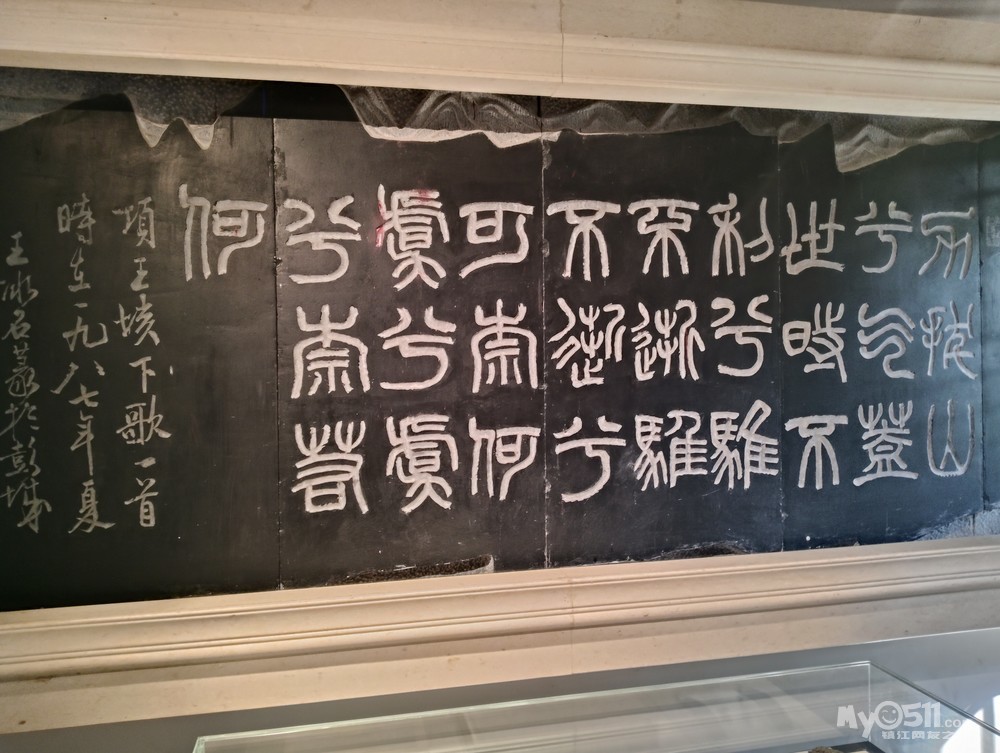 力拔山
兮气蓋
世時不
利兮騅
不逝騅
不逝兮
可奈何
虞兮虞
兮奈若
何
項王垓下歌一首
時在一九八七年夏
王冰石篆於彭城
My0511.com
镇江网友之